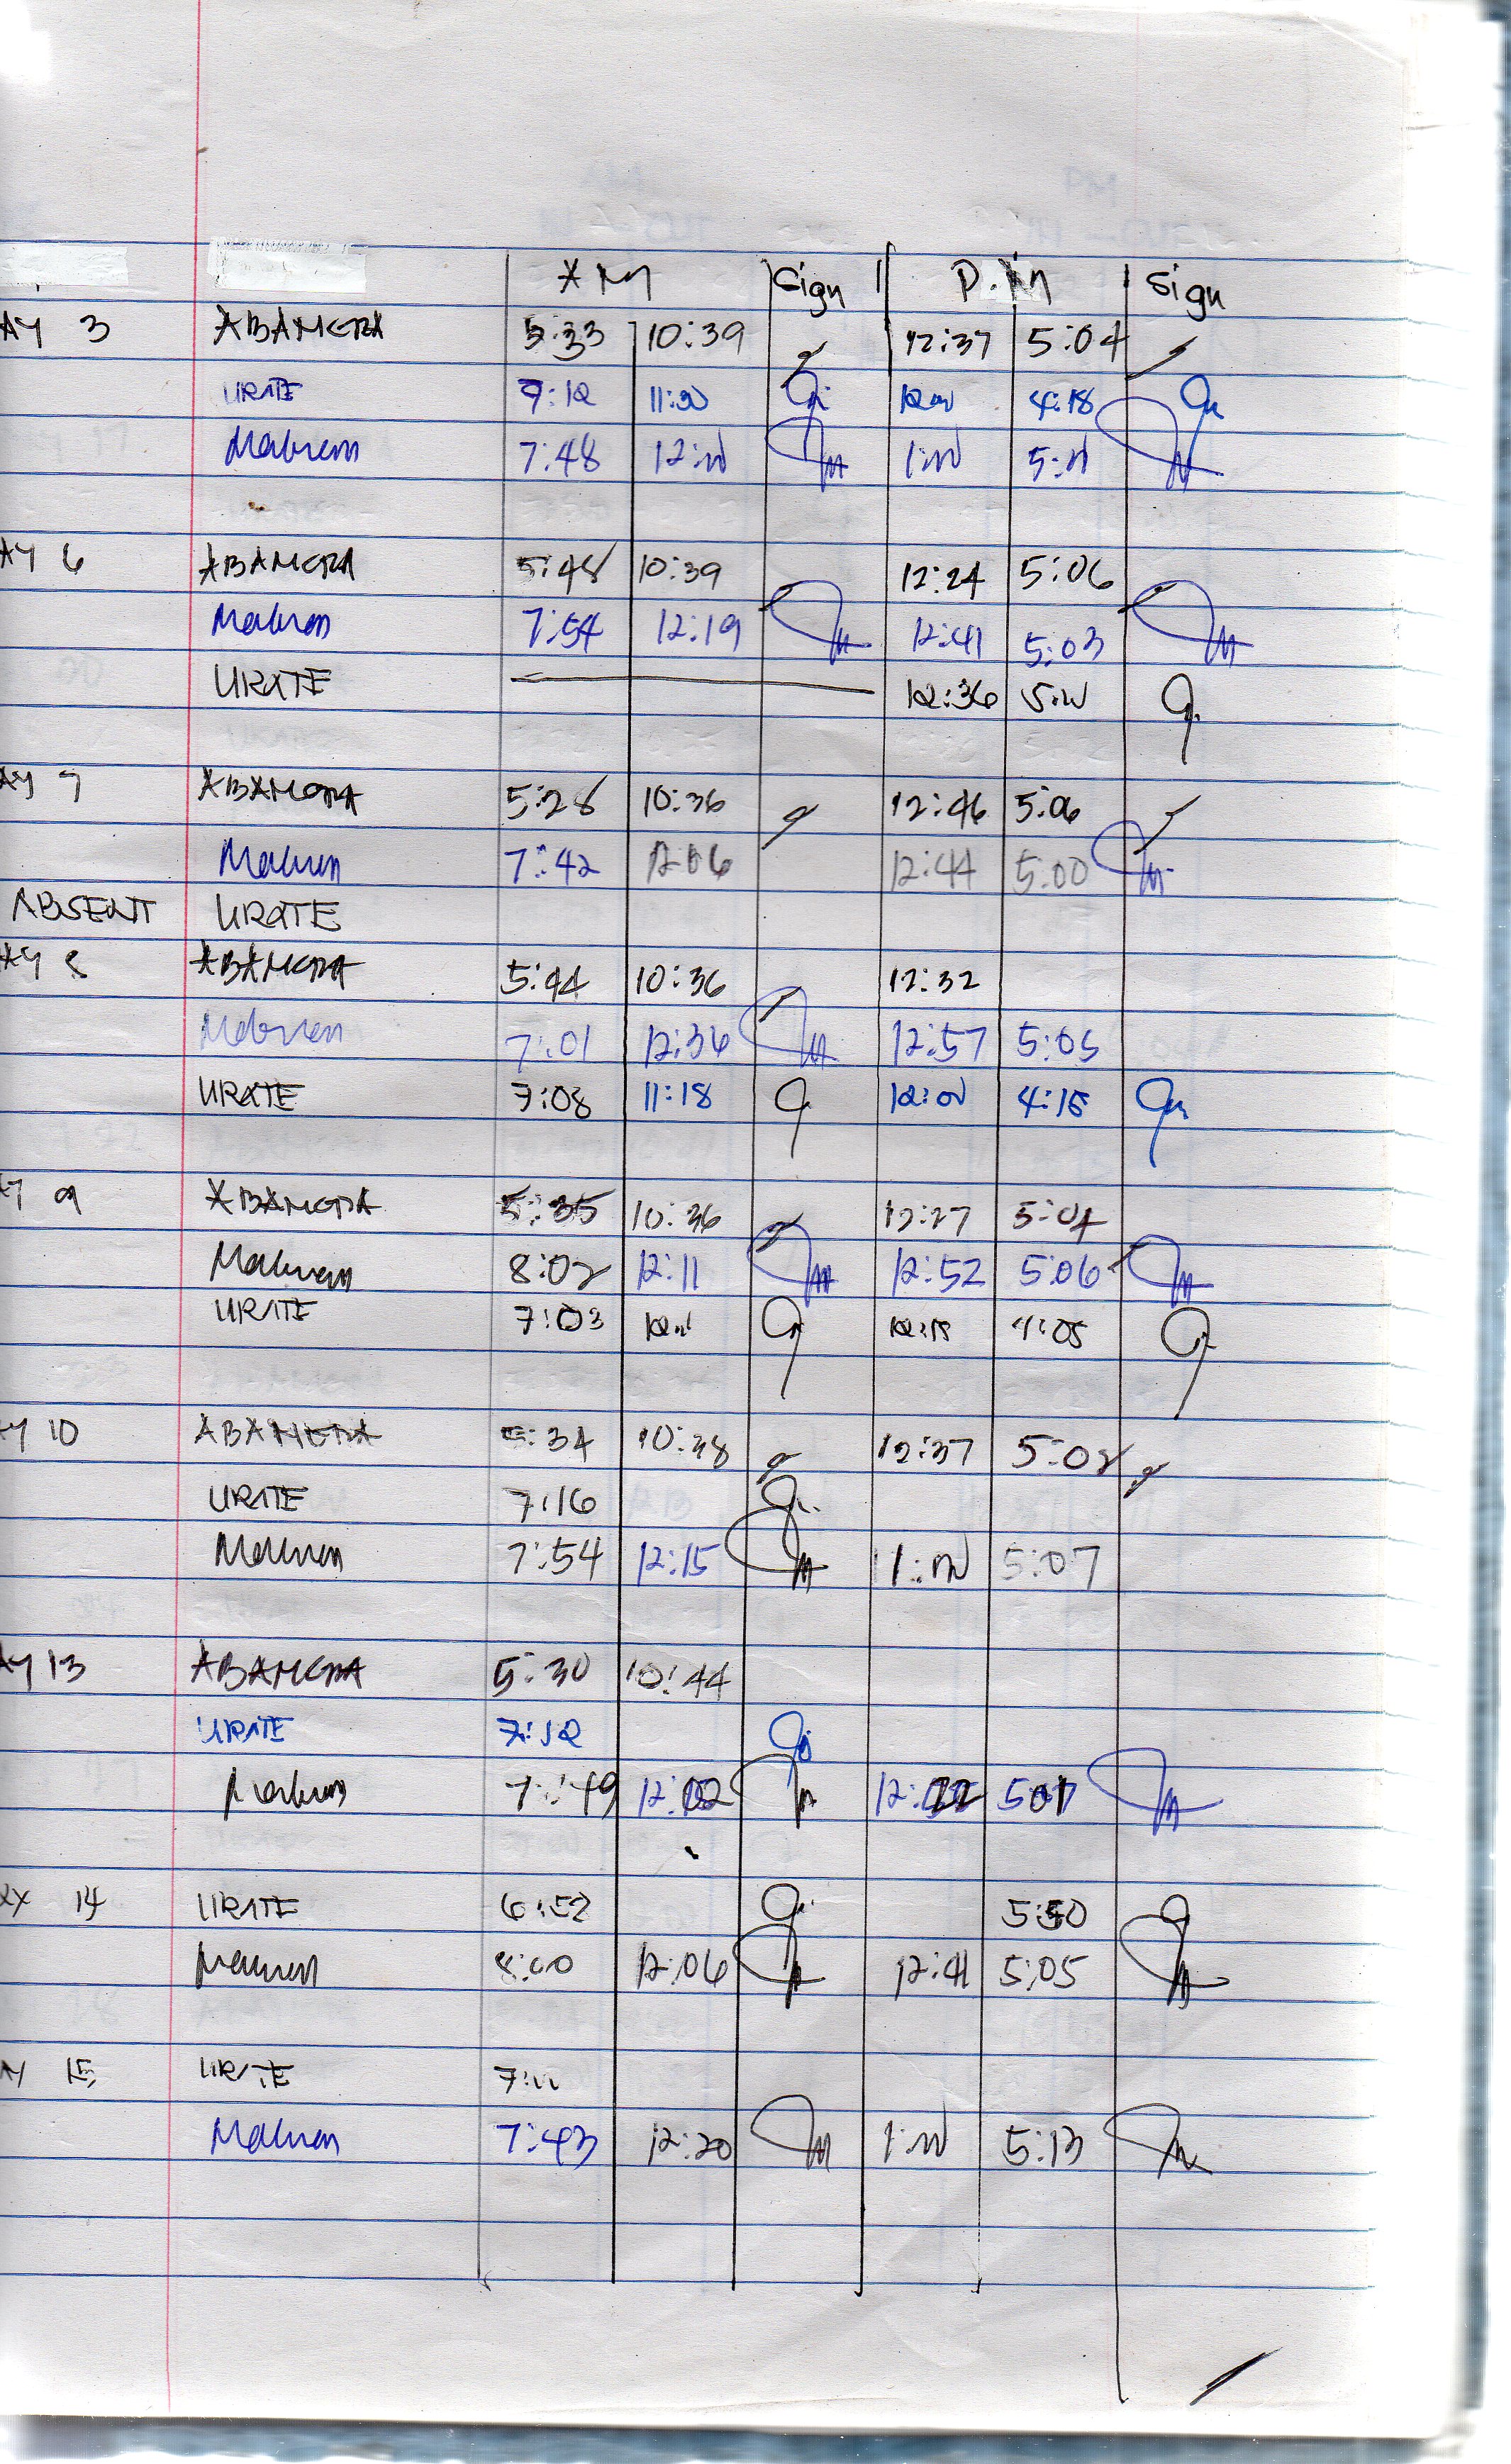 AM Sign P.M Sign
AY 3 ABAMGBA 5:33 10:39 12:37 5:04
URATE 7:12 11:30 4:18
7:48 12:00 1:00 5:01
AY 6 ABAMGBA 5:48 10:39 12:24 5:06
7:54 12:19 12:41 5:03
URATE 12:36 5:00
AY 7 ABAMGBA 5:28 10:36 12:46 5:06
7:42 12:06 12:44 5:00
ABSENT URATE
AY 8 ABAMGBA 5:44 10:36 12:32
7:01 12:36 12:57 5:05
URATE 7:08 11:18 12:00 4:15
AY 9 ABAMGBA 5:35 10:36 12:27 5:04
8:02 12:11 12:52 5:06
URATE 7:03 4:05
AY 10 ABAMGBA 5:34 10:38 12:37 5:02
URATE 7:16
7:54 12:15 1:00 5:07
AY 13 ABAMGBA 5:30 10:44
URATE 7:12
7:49 12:02 12:22 5:01
AY 14 URATE 6:52 5:50
8:00 12:06 12:41 5:05
AY 15 URATE 7:00
7:43 12:20 1:00 5:13